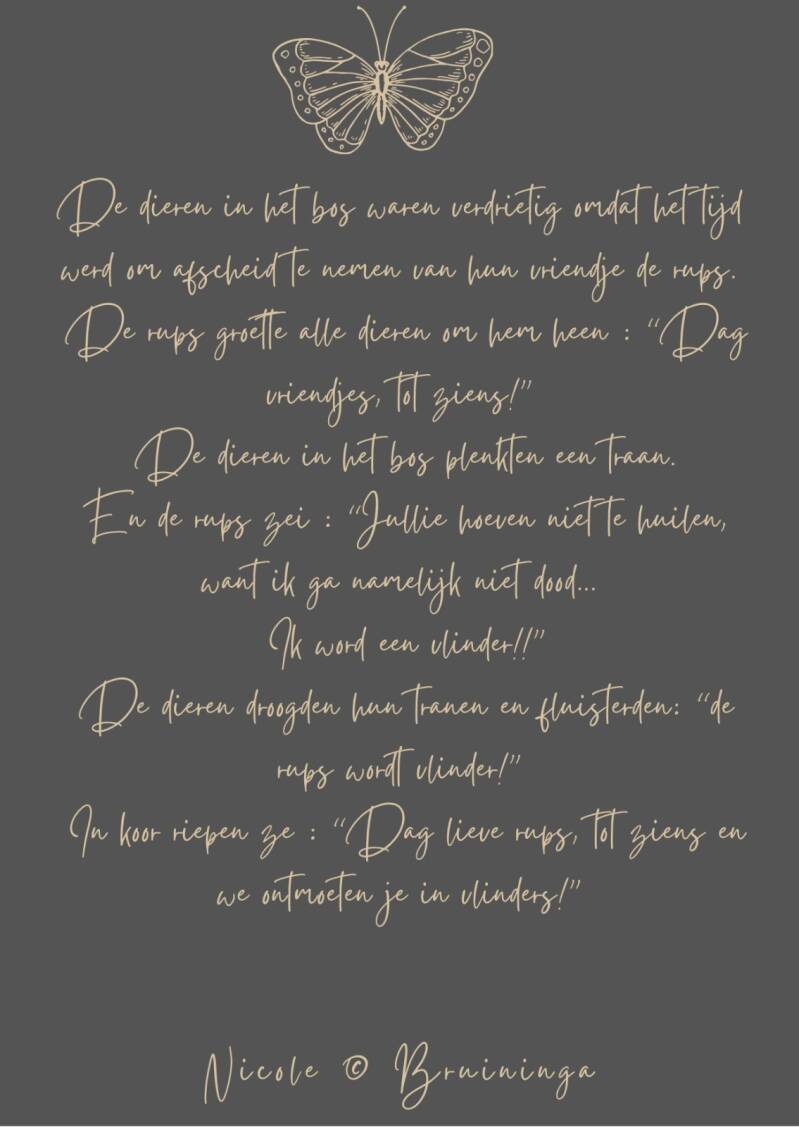 De dieren in het bos waren verdrietig omdat het tijd
werd om afscheid te nemen van hun vriendje de rups.
De rups groette alle dieren om hem heen : “Dag
vriendjes, tot ziens!”
De dieren in het bos plenkten een traan.
En de rups zei : “Jullie hoeven niet te huilen,
want ik ga namelijk niet dood...
Ik word een vlinder!!”
De dieren droogden hun tranen en fluisterden: “de
rups wordt vlinder!”
In koor riepen ze : “Dag lieve rups, tot ziens en
we ontmoeten je in vlinders!”
Nicole © Bruininga